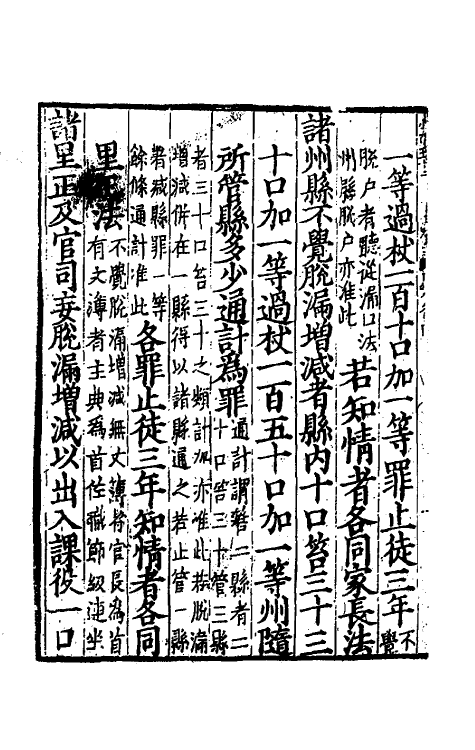 一等過杖一百十口加一等罪止徒三年不覺
脫戶者聽從漏口法州縣脫戶亦准此若知情者各同家長法
諸州縣不覺脫漏增減者縣內十口笞三十三
十口加一等過杖一百五十口加一等州隨
所管縣多少通計爲罪通計謂管二縣者二十口笞三十管三縣
者三十口笞三十之類計加亦准此若脫漏增減併在一縣得以諸縣通之若止管一縣
者減縣罪一等餘條通計准此各罪止徒三年知情者各同
里正法不覺脫漏增減無文簿者官長爲首有文簿者主典爲首佐職節級連坐
諸里正及官司妄脫漏增減以出入課役一口